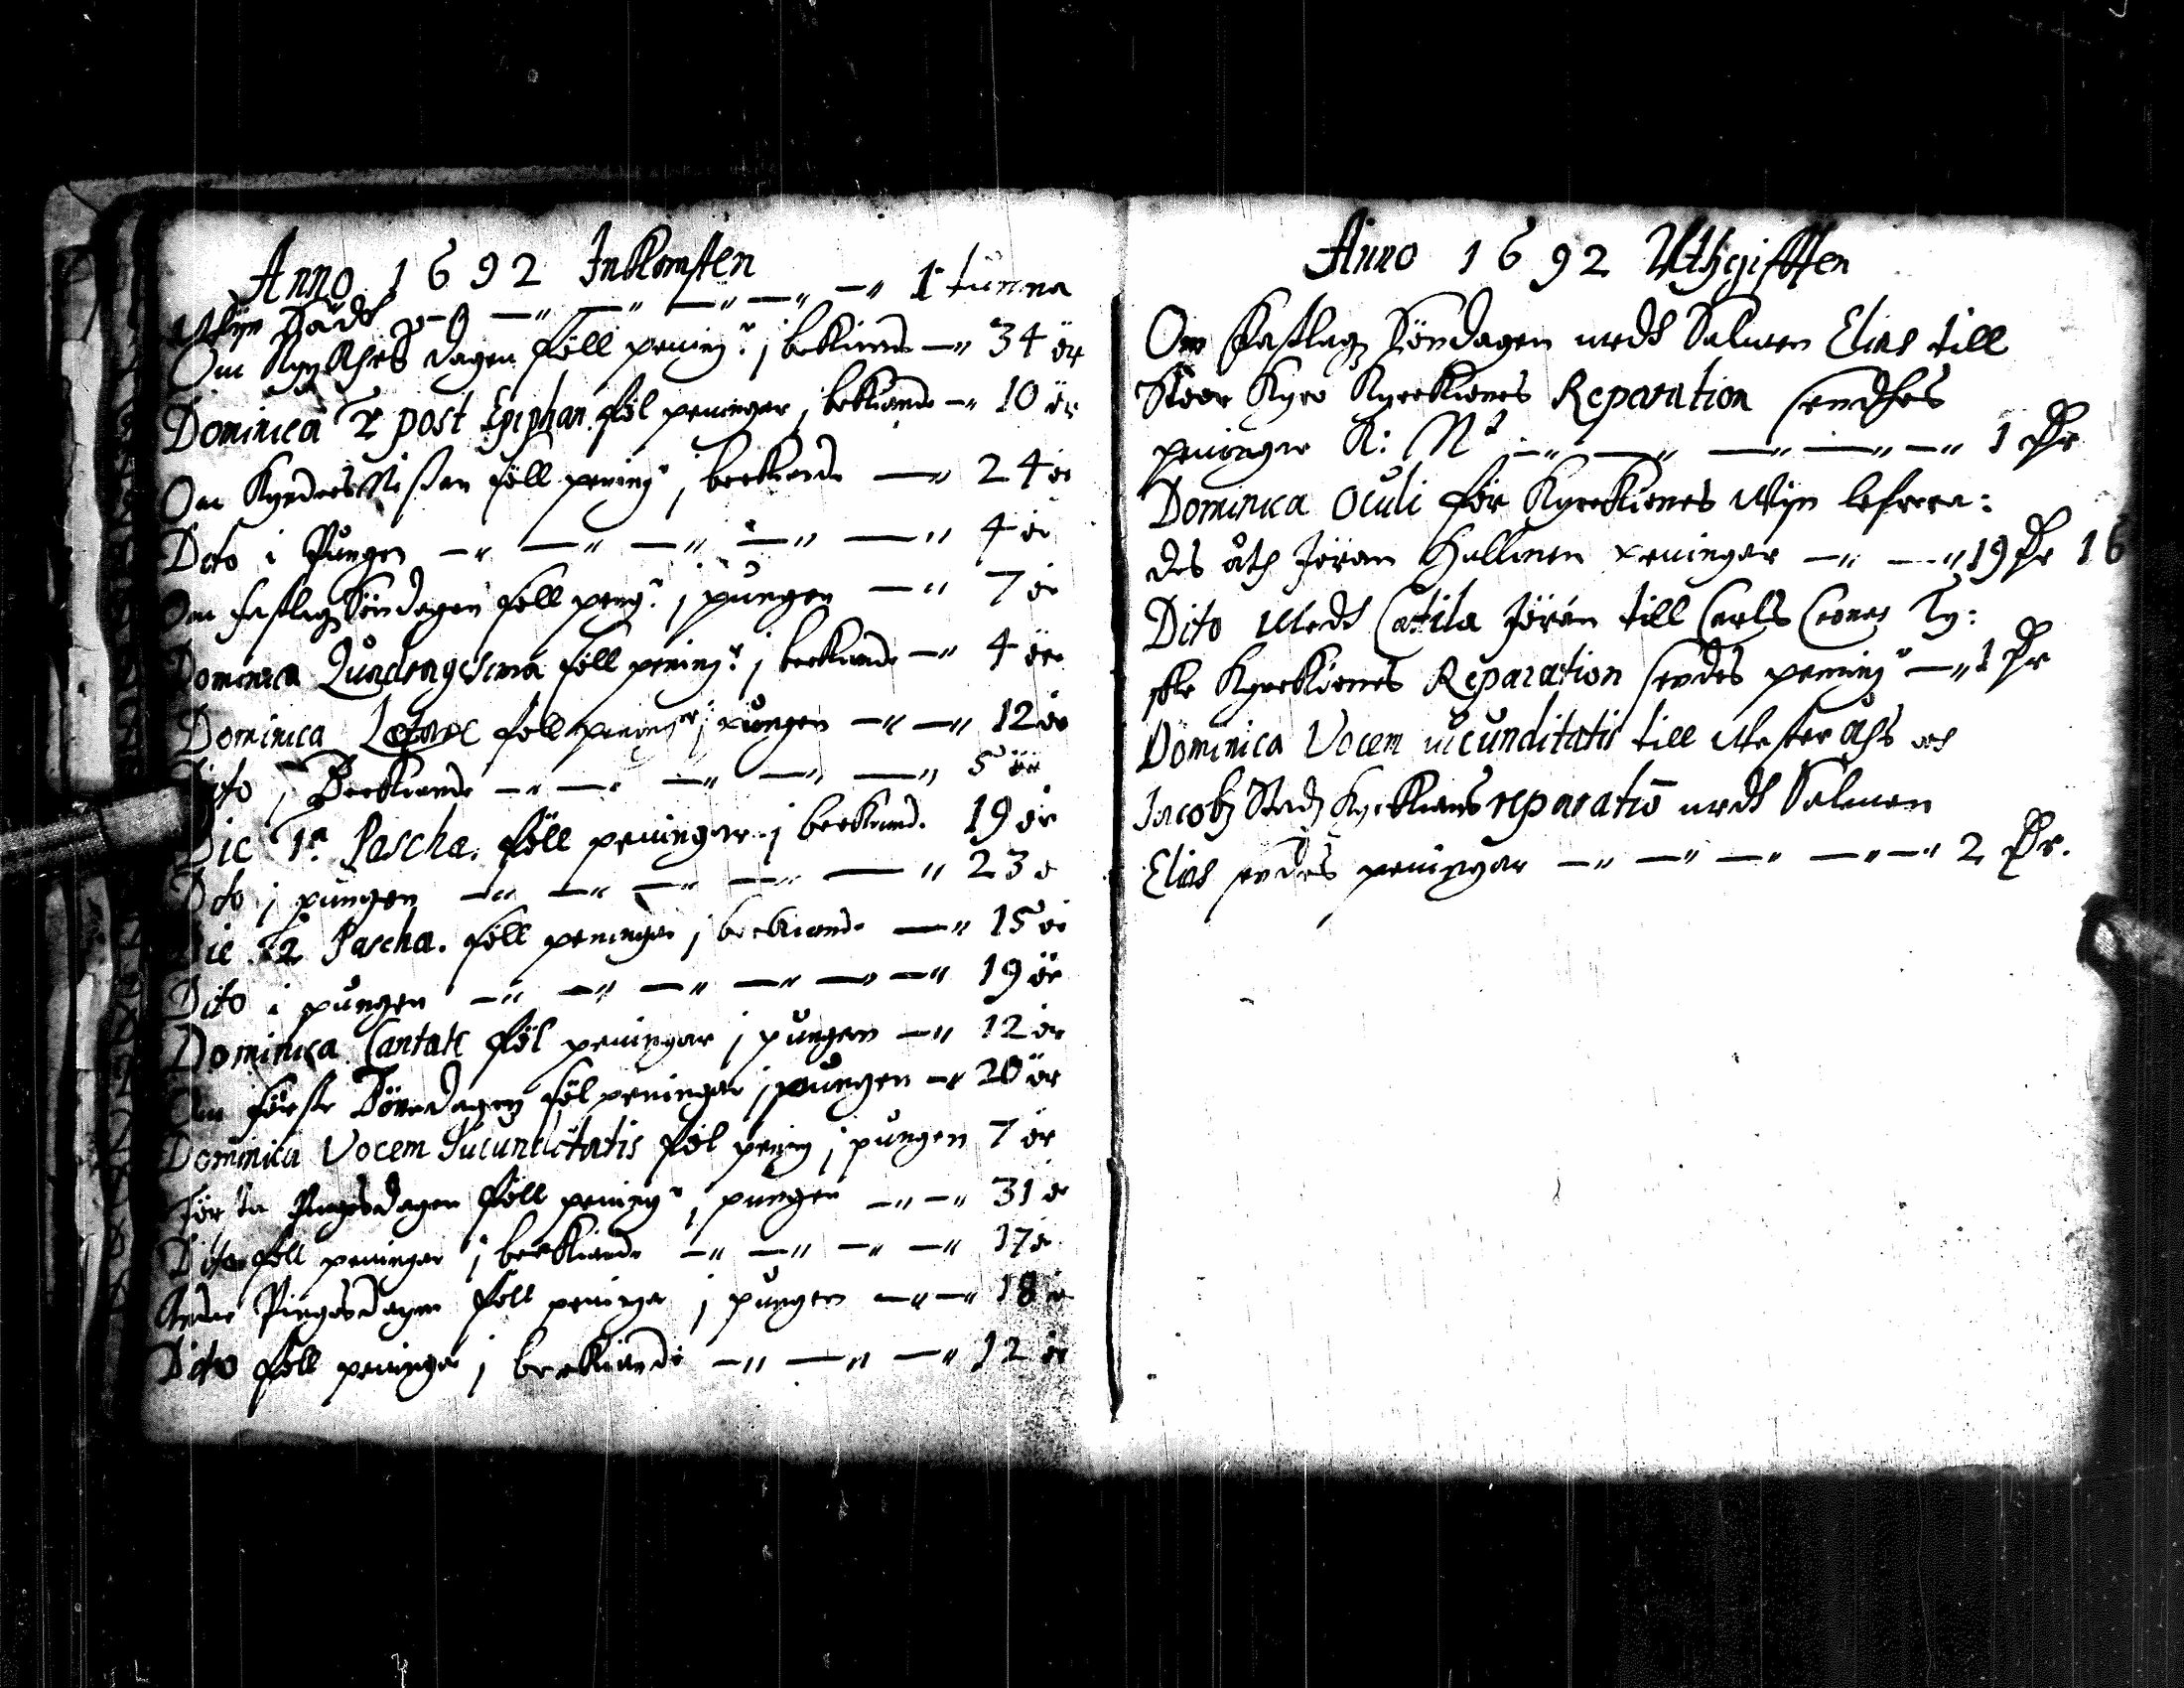 Anno 1692 Inkomsten
Wijn Sädh — — — — — 1 tunna
Om Nyy Åhrs dagen föll pening: i beckiande — 34 ör
Dominica 2 post Epiphan. föl peningar i beckiande — 10 ör
Om Kyndersmässan föll pening i beckiande — 24 ör
Dito i Pungen — — — — — 4 ör
Om fastlags Söndagen föll peng: i pungen — 7 ör
Dominica Quadragesima föll pening: i beckiande — 4 ör
Dominica Lætare föll pening i pungen — — 12 ör
Dito i Beckiande — — — — — 5 ör
Die 1a Pascha. föll peningar i beckiand. 19 ör
Dito i pungen — — — — — 23 ö
Die 2 Pascha. föll peningar i beckiande — 15 ör
Dito i pungen — — — — — — 19 ör
Dominica Cantate föl peningar i pungen — 12 ör
Om förste Bönedagen föl peningar i pungen — 20 ör
Dominica Vocem Jucunditatis föl pening i pungen 7 ör
Första Pingesdagen föll pening i pungen — — 31 ör
Dito föll peningar i beckiande — — — — 17 ör
Andre Pingesdagen föll peningar i pungen — — 18 ör
Dito föll peningar i beckiande — — — 12 ör
Anno 1692 Uthgifften
Om Fastlags Söndagen medh Salmen Elias till
Stoor Kyro Kyrckiones Reparation sendhes
peningar K: Mt — — — — — 1 dr
Dominica Oculi för Kyrckiones Wijn lefrera:
des åth Jöran Hallonen peningar — — 19 dr 16
Dito Medh Cattila Jören till Carls Crones Ty:
ske Kyrckiones Reparation sendes pening — 1 dr
Dominica Vocem iucunditatis till Westeråhs och
Jacobs Stads Kyrckians reparatio medh Salmen
Elias sendes peningar — — — — — 2 dr.